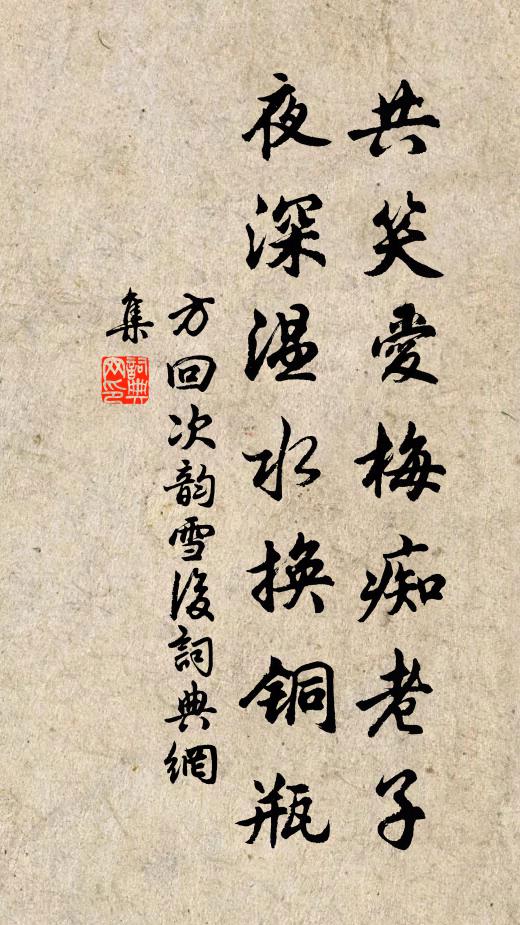 共笑愛梅痴老子
夜深温水換銅瓶
方回次韵雪後詞典網
集
詞典网印